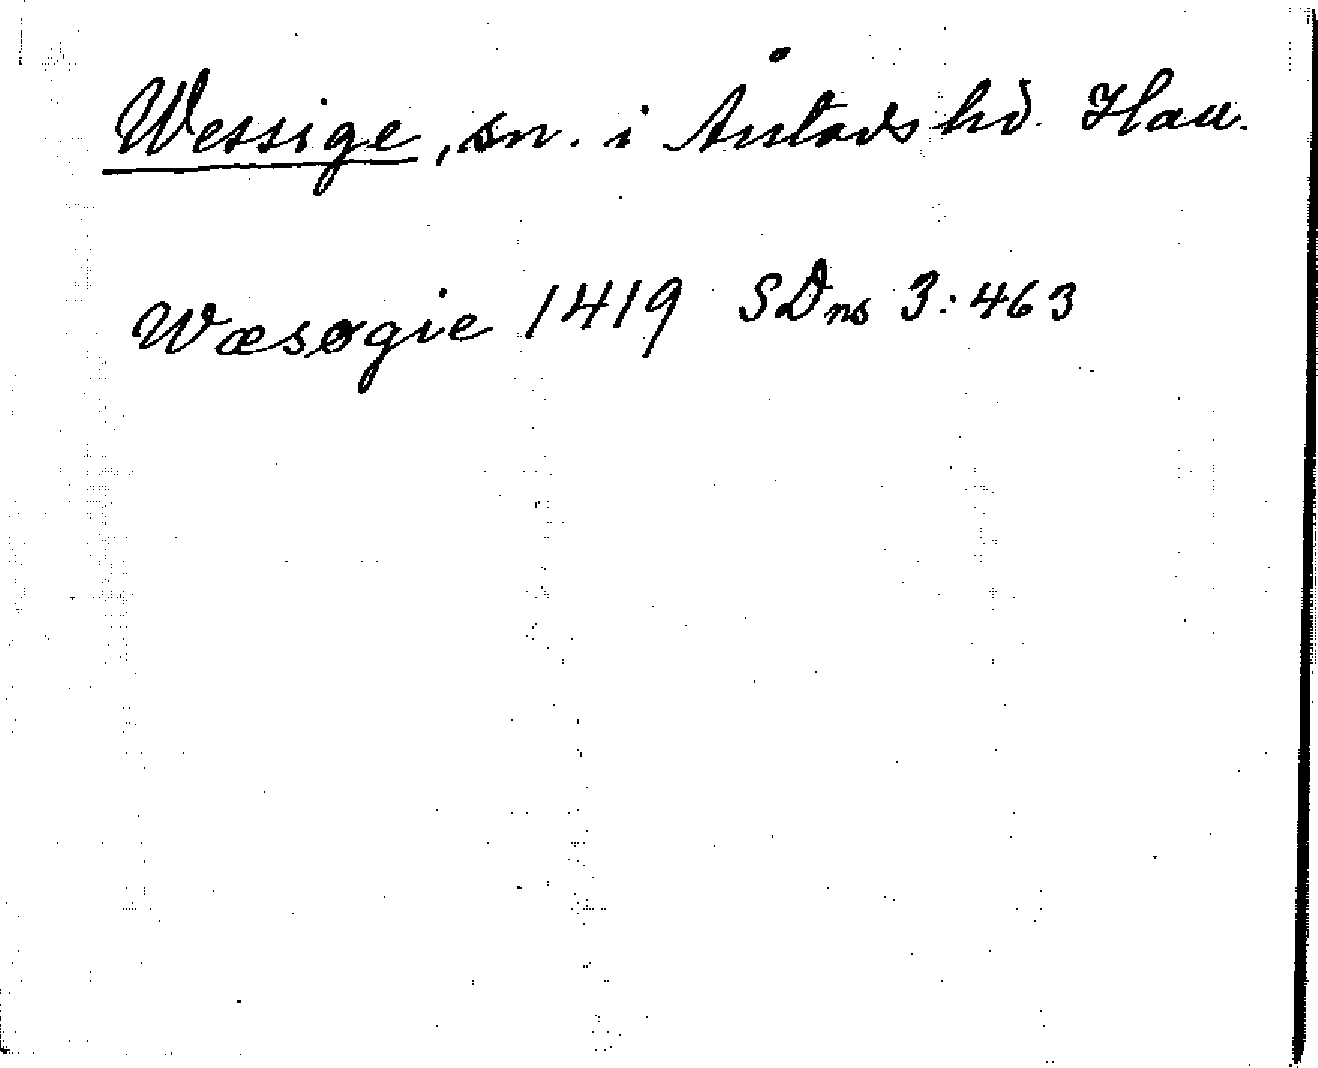 Wessige, sn. i Årstads hd. Hall.
Wæsøgie 1419 SDns 3:463